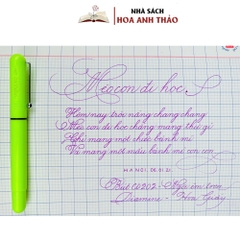 NHÀ SÁCH
HOA ANH THẢO
Mèo con đi học
Hôm nay trời nắng chang chang
Mèo con đi học chẳng mang thứ gì
Chỉ mang một chiếc bút chì
Và mang một mẩu bánh mì con con
Bút 0202 - Ngòi im tom
Diamine -